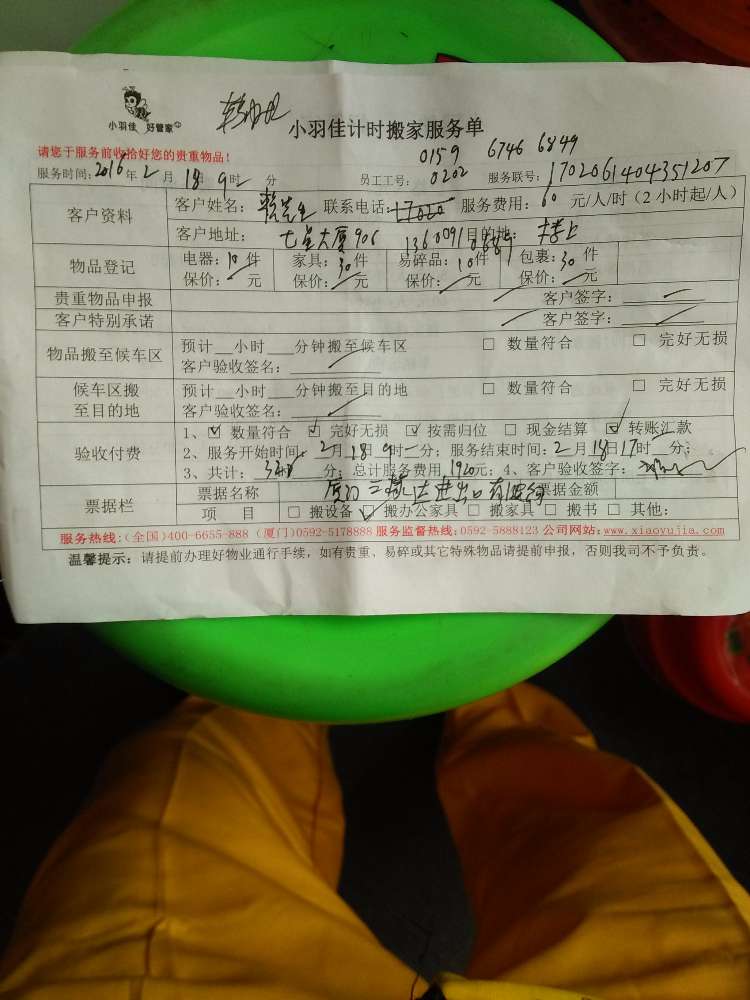 小羽佳 好管家
小羽佳计时搬家服务单
请您于服务前收拾好您的贵重物品!
0159 6746 6849
服务时间: 2016年2月18日9时 分 员工工号: 0202 服务联号: 1702061404351207
客户资料 客户姓名: 先生 联系电话: 17020 服务费用: 60 元/人/时(2小时起/人)
客户地址: 七星大厦906 目的地: 楼上
物品登记 电器: 10件 家具: 30件 易碎品: 10件 包裹: 30件
保价: 元 保价: 元 保价: 元 保价: 元
贵重物品申报 客户签字:
客户特别承诺 客户签字:
物品搬至候车区 预计__小时___分钟搬至候车区 □ 数量符合 □ 完好无损
客户验收签名:
候车区搬至目的地 预计__小时___分钟搬至目的地 □ 数量符合 □ 完好无损
客户验收签名:
验收付费 1、☑ 数量符合 ☑ 完好无损 ☑ 按需归位 □ 现金结算 ☑ 转账汇款
2、服务开始时间: 2月18日9时 分; 服务结束时间: 2月18日17时 分;
3、共计: 分; 总计服务费用 1920元; 4、客户验收签字:
票据栏 票据名称 票据金额
项 目 □ 搬设备 ☑ 搬办公家具 □ 搬家具 □ 搬书 □ 其他:
服务热线:(全国)400-6655-888 (厦门)0592-5178888 服务监督热线:0592-5888123 公司网站:www.xiaoyujia.com
温馨提示: 请提前办理好物业通行手续,如有贵重、易碎或其它特殊物品请提前申报,否则我司不予负责。